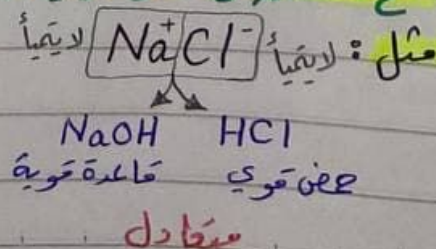 مثل : لا يتميأ Na⁺Cl⁻ لا يتميأ
NaOH HCl
قاعدة قوية حمض قوي
متعادل